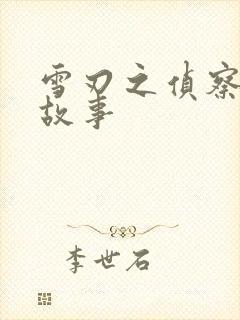 雪刃之偵察
故事
李世石